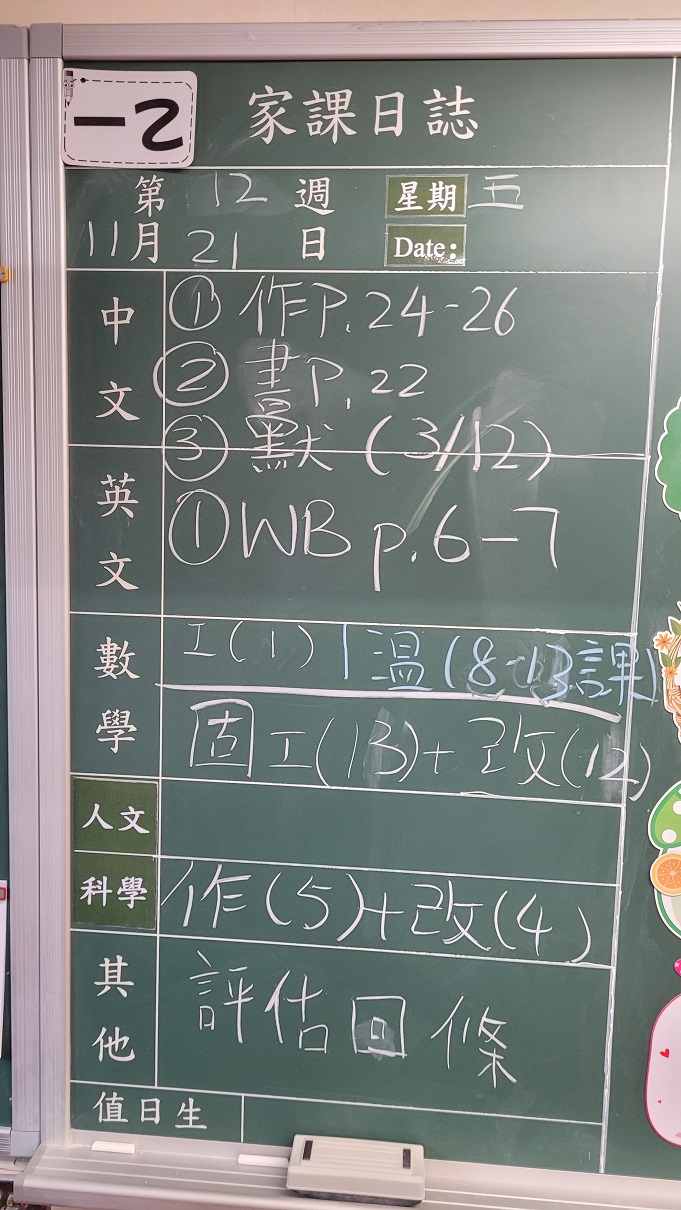 一乙
家課日誌
第 12 週 星期 五
11月 21 日 Date:
中文
① 作P.24-26
② 書P.22
③ 默 (3/12)
英文
① WB p.6-7
數學
工(1) 溫(8-13課)
固工(13)+改(12)
人文
科學
作(5)+改(4)
其他
評估回條
值日生